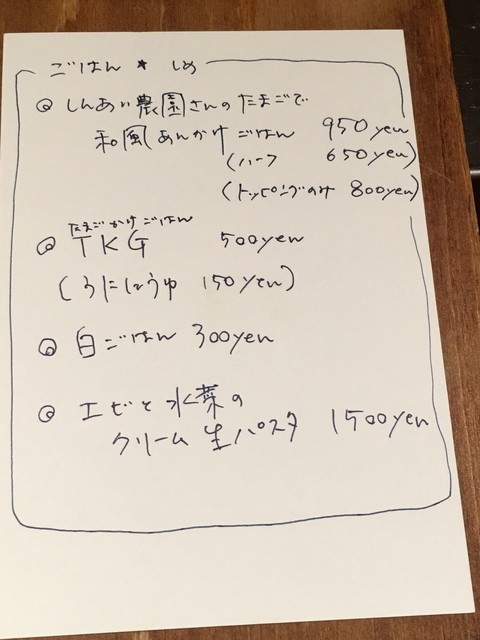 ごはん ★ しめ
◎ しんあい農園さんのたまごで
和風あんかけごはん 950yen
(ハーフ 650yen)
(トッピングのみ 800yen)
たまごかけごはん
◎ TKG 500yen
(うにしょうゆ 150yen)
◎ 白ごはん 300yen
◎ エビと水菜の
クリーム生パスタ 1500yen